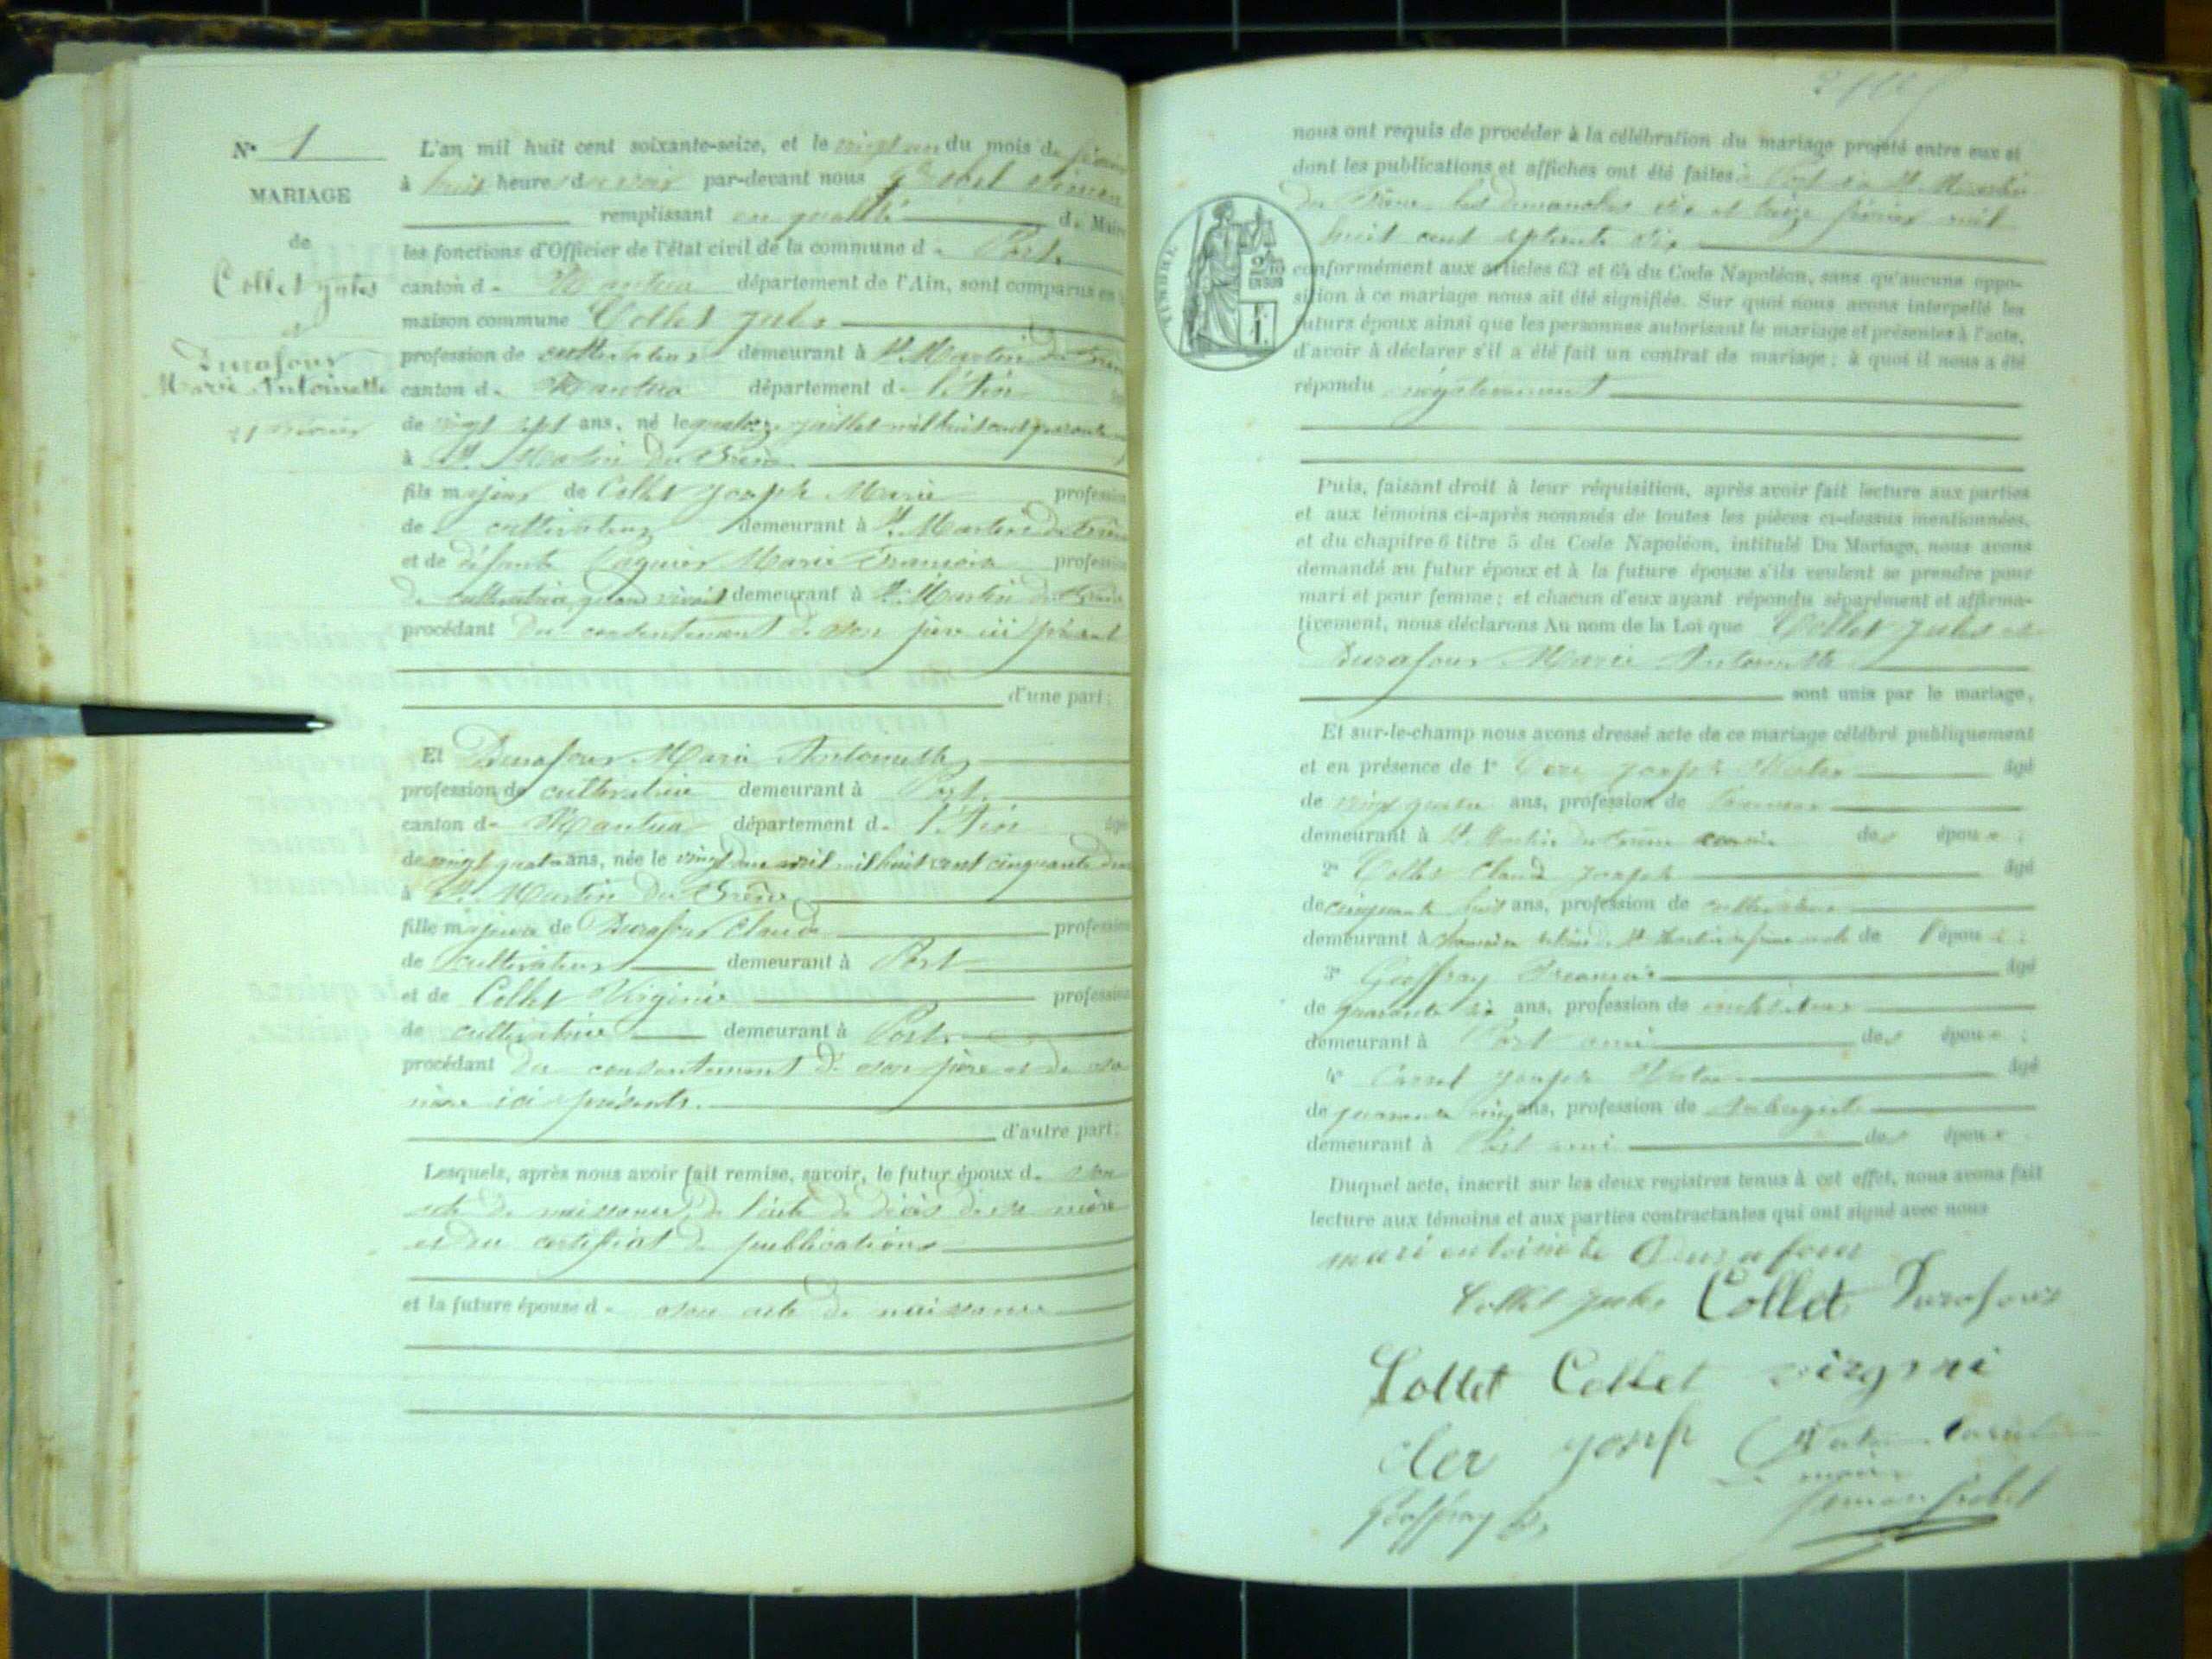 N° 1
MARIAGE
de
Collet Jules
et
Durafour
Marie Antoinette
21 février
L'an mil huit cent soixante-seize, et le vingt un du mois de février
à huit heures du soir par-devant nous Grobel Simon
remplissant en qualité de Maire
les fonctions d'Officier de l'état civil de la commune de Port
canton de Nantua département de l'Ain, sont comparus en la
maison commune Collet Jules
profession de cultivateur demeurant à St Martin du Frêne
canton de Nantua département de l'Ain âgé
de vingt sept ans, né le quatorze juillet mil huit cent quarante
à St Martin du Frêne
fils majeur de Collet Joseph Marie profession
de cultivateur demeurant à St Martin du Frêne
et de défunte Marie profession
de cultivatrice quand vivait demeurant à St Martin du Frêne
procédant du consentement de son père ici présent
d'une part;
Et Durafour Marie Antoinette
profession de cultivatrice demeurant à Port
canton de Nantua département de l'Ain âgé
de vingt quatre ans, née le vingt avril mil huit cent cinquante deux
à St Martin du Frêne
fille majeure de Durafour Claude profession
de cultivateur demeurant à Port
et de Collet Virginie profession
de cultivatrice demeurant à Port
procédant du consentement de son père et de sa
mère ici présents.
d'autre part:
Lesquels, après nous avoir fait remise, savoir, le futur époux de son
acte de naissance, de l'acte de décès de sa mère
et du certificat de publications
et la future épouse de son acte de naissance
nous ont requis de procéder à la célébration du mariage projeté entre eux et
dont les publications et affiches ont été faites à Port et à St Martin
du Frêne les dimanches six et treize février mil
huit cent septante six
TIMBRE
conformément aux articles 63 et 64 du Code Napoléon, sans qu'aucune oppo-
sition à ce mariage nous ait été signifiée. Sur quoi nous avons interpellé les
futurs époux ainsi que les personnes autorisant le mariage et présentes à l'acte,
d'avoir à déclarer s'il a été fait un contrat de mariage; à quoi il nous a été
répondu négativement
Puis, faisant droit à leur réquisition, après avoir fait lecture aux parties
et aux témoins ci-après nommés de toutes les pièces ci-dessus mentionnées,
et du chapitre 6 titre 5 du Code Napoléon, intitulé Du Mariage, nous avons
demandé au futur époux et à la future épouse s'ils veulent se prendre pour
mari et pour femme; et chacun d'eux ayant répondu séparément et affirma-
tivement, nous déclarons Au nom de la Loi que Collet Jules et
Durafour Marie Antoinette
sont unis par le mariage,
Et sur-le-champ nous avons dressé acte de ce mariage célébré publiquement
et en présence de 1° Joseph âgé
de vingt quatre ans, profession de
demeurant à St Martin du Frêne cousin des époux;
2° Collet Claude Joseph âgé
de cinquante huit ans, profession de cultivateur
demeurant à St Martin du Frêne oncle de l'épou
3° Geoffray François âgé
de quarante six ans, profession de cultivateur
demeurant à Port ami des époux;
4° Carrel Joseph âgé
de quarante cinq ans, profession de Aubergiste
demeurant à Port ami des époux
Duquel acte, inscrit sur les deux registres tenus à cet effet, nous avons fait
lecture aux témoins et aux parties contractantes qui ont signé avec nous
mari entoinete Durafour
Collet Jules Collet Durafour
Collet Collet virgini
Cler Josef
Le maire
Geoffray Simon Grobel